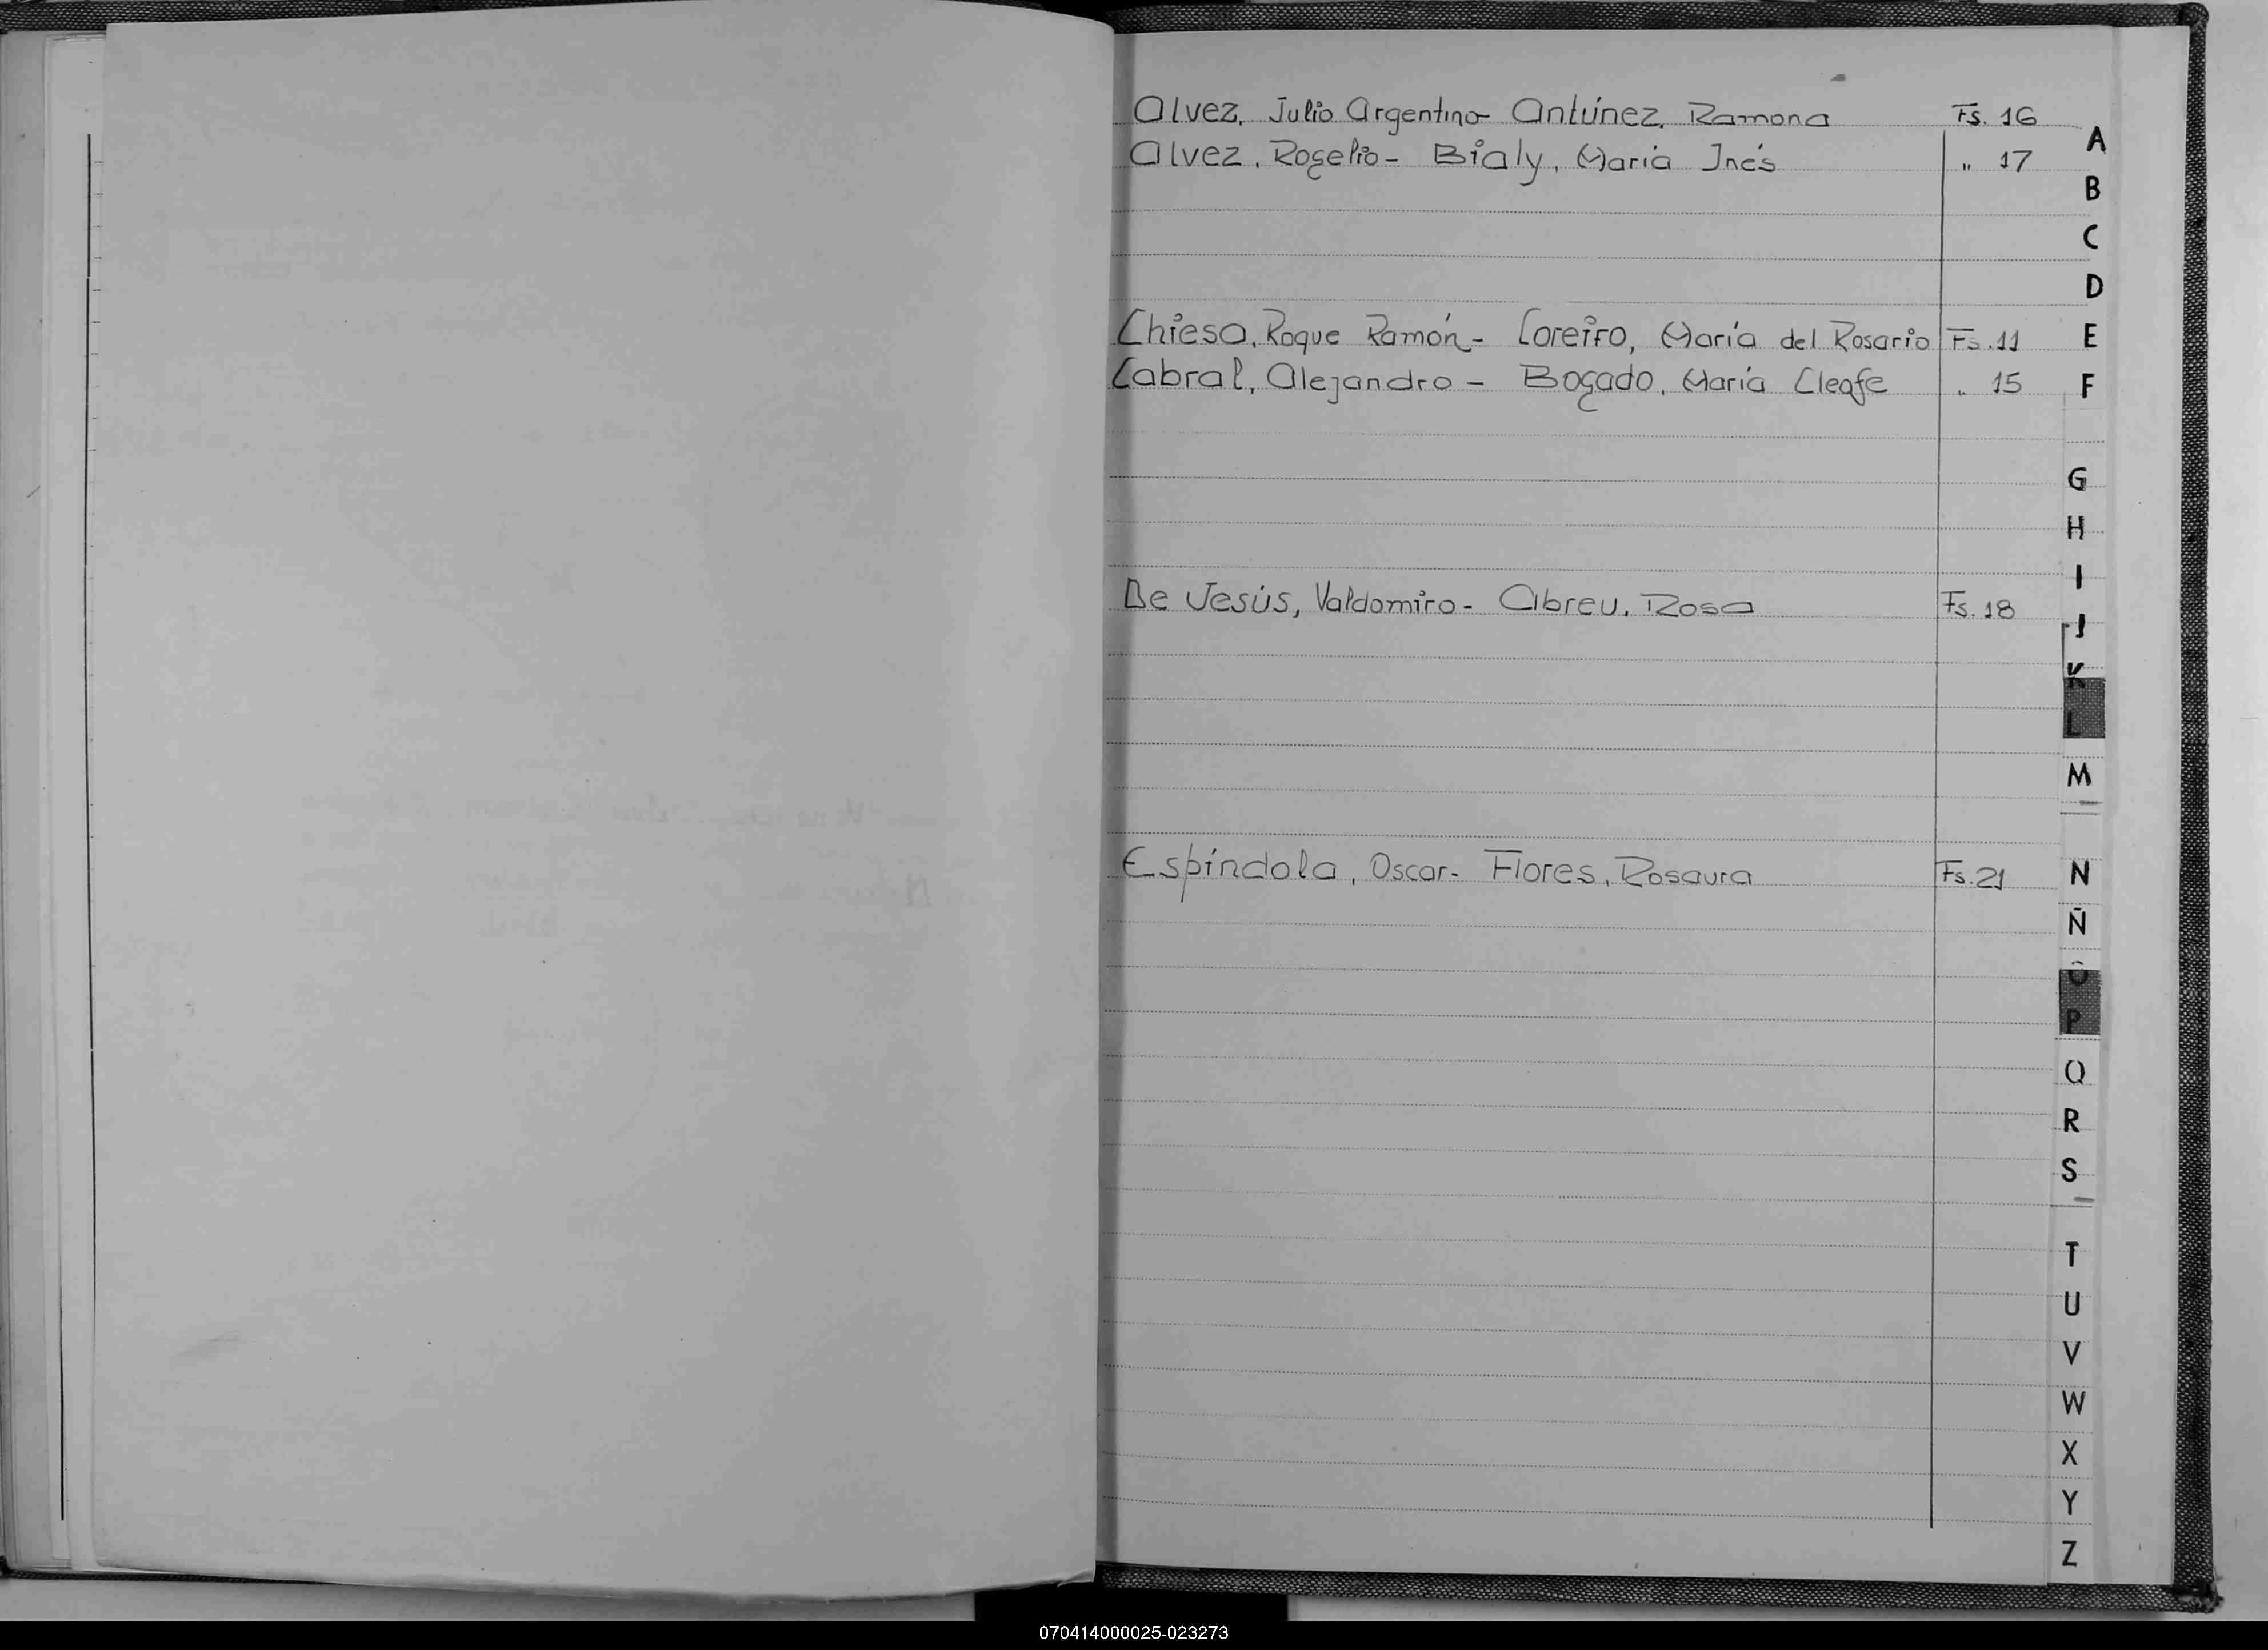 Alvez, Julio Argentino- Antúnez, Ramona Fs. 16
Alvez, Rogelio- Bialy, María Inés " 17
Chiesa, Roque Ramón- Coreiro, María del Rosario Fs. 11
Cabral, Alejandro- Bogado, María Cleofe " 15
De Jesús, Valdomiro- Abreu, Rosa Fs. 18
Espíndola, Oscar- Flores, Rosaura Fs. 21
A
B
C
D
E
F
G
H
I
J
K
L
M
N
Ñ
O
P
Q
R
S
T
U
V
W
X
Y
Z
070414000025-023273